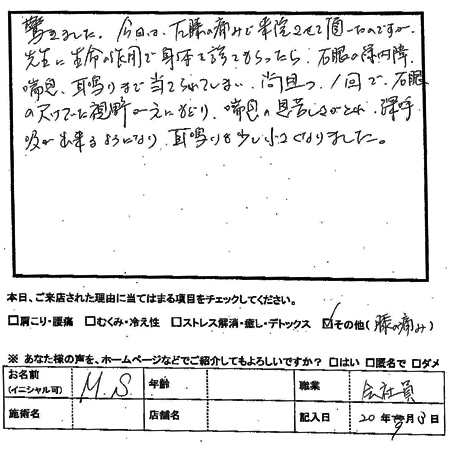 驚きました。今回は、右膝の痛みで来院させて頂いたのですが、
先生に生命の作用で身体を診てもらったら、右眼の緑内障、
喘息、耳鳴りまで当てられてしまい、尚且つ、1回で、右眼
の欠けていた視野が元にもどり、喘息の息苦しさがとれ、深呼
吸が出来るようになり、耳鳴りも少し小さくなりました。
本日、ご来店された理由に当てはまる項目をチェックしてください。
□肩こり・腰痛 □むくみ・冷え性 □ストレス解消・癒し・デトックス ☑その他(膝の痛み)
※ あなた様の声を、ホームページなどでご紹介してもよろしいですか? □はい □匿名で □ダメ
お名前 (イニシャル可) M.S 年齢 職業 会社員
施術名 店舗名 記入日 20年9月13日